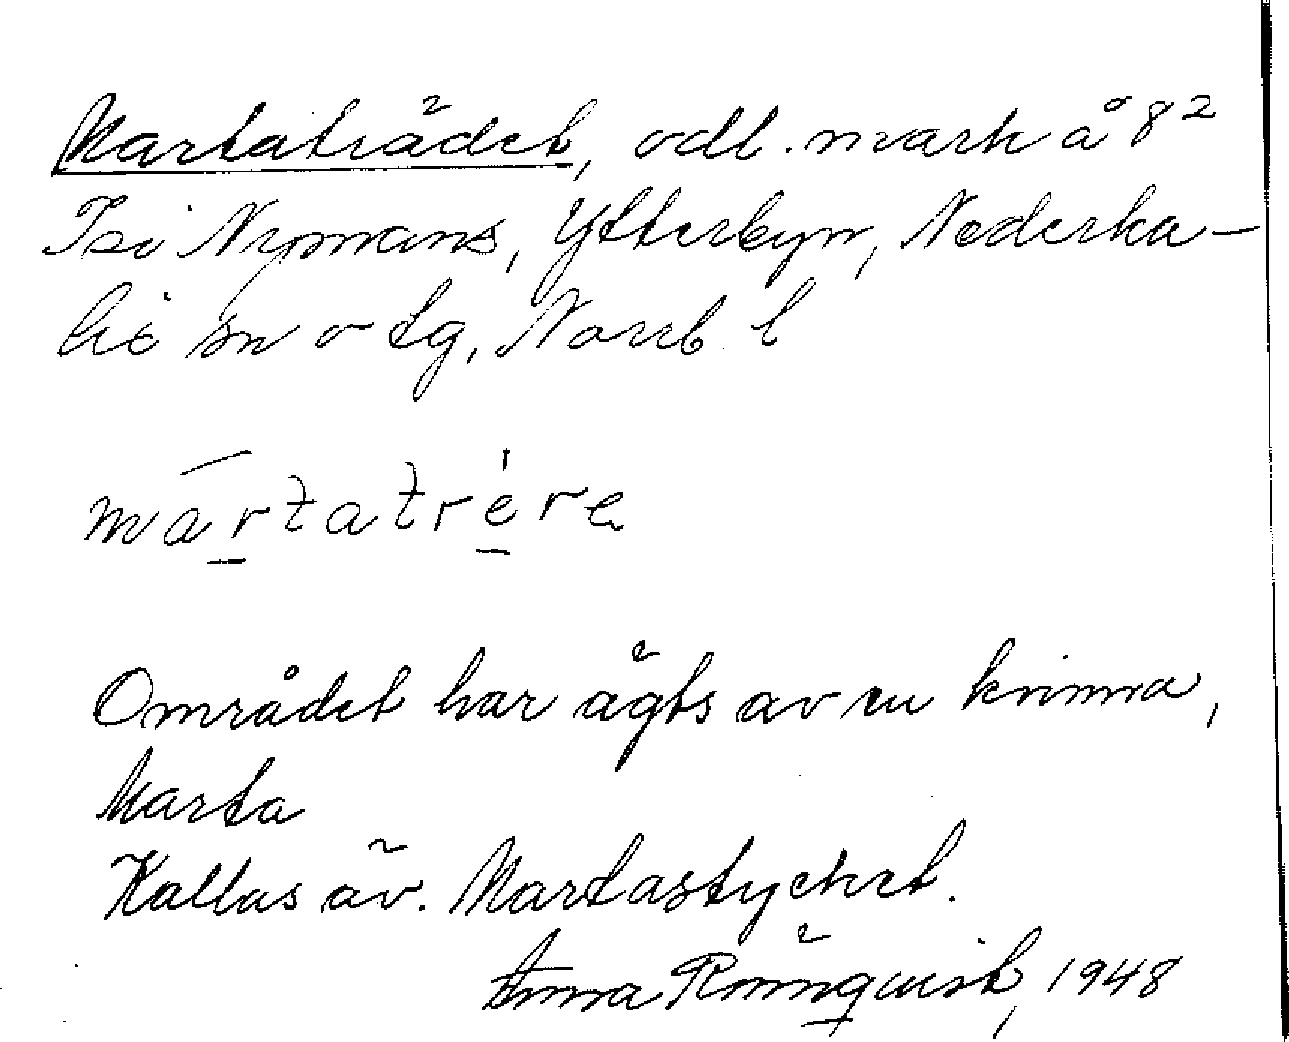 Martaträdet, odl. mark å 8²
Isi Nymans, Ytterbyn, Nederka-
lix sn o tg, Norrb l
martatrere
Området har ägts av en kvinna,
Marta
Kallas äv. Martastycket.
Anna Rönnqvist, 1948